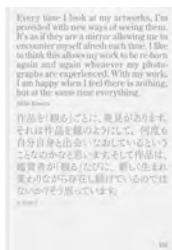 Every time I look at my artworks, I'm
provided with new ways of seeing them.
It's as if they are a mirror allowing me to
encounter myself afresh each time. I like
to think this allows my work to be re-born
again and again whenever my photo-
graphs are experienced. With my work,
I am happy when I feel there is nothing,
but at the same time everything.
作品を「観る」ごとに、発見があります。
それは作品を鏡のようにして、何度も
自分自身と出会いなおしているという
ことなのかなと思います。そして作品は、
鑑賞者が「観る」たびに、新しく生まれ
変わりながら存在し続けているのでは
ないか?そう思っています。